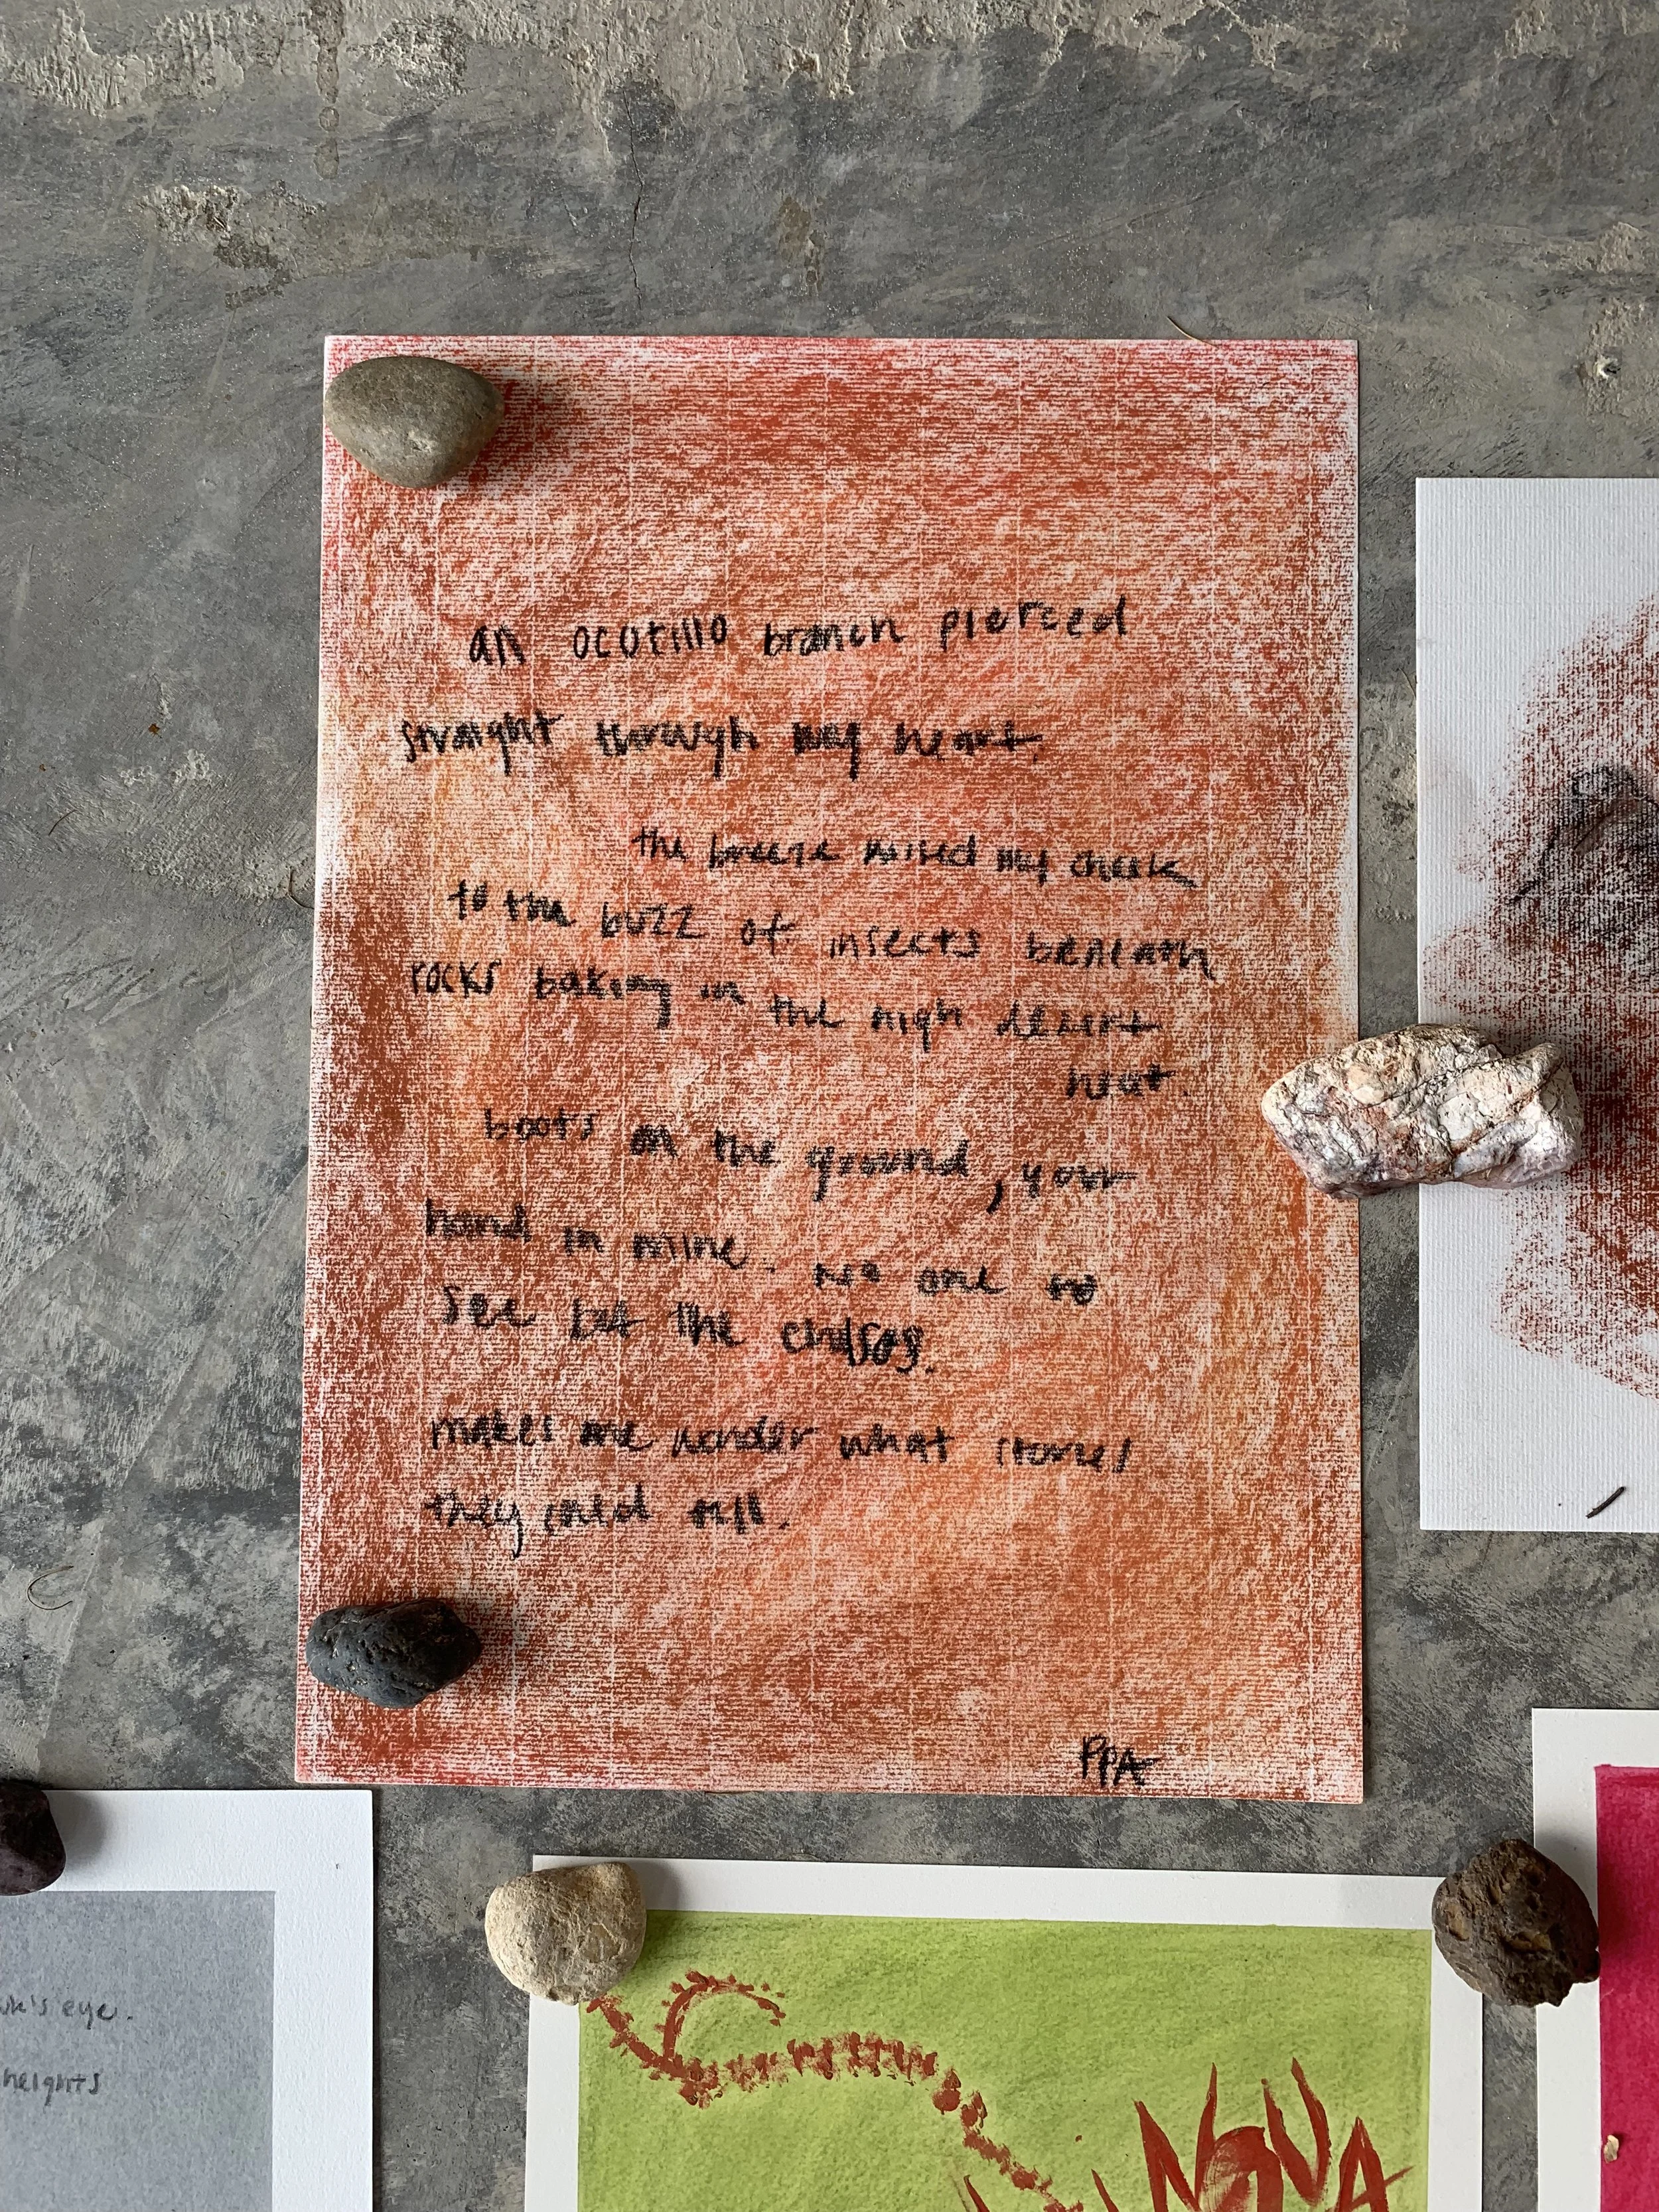 an ocotillo branch pierced
straight through my heart.
the breeze raised my cheek
to the buzz of insects beneath
rocks baking in the high desert
heat.
boots on the ground, your
hand in mine. no one to
see but the chisos.
makes me wonder what stories
they could tell.
PPA
eye.
heights
NOVA